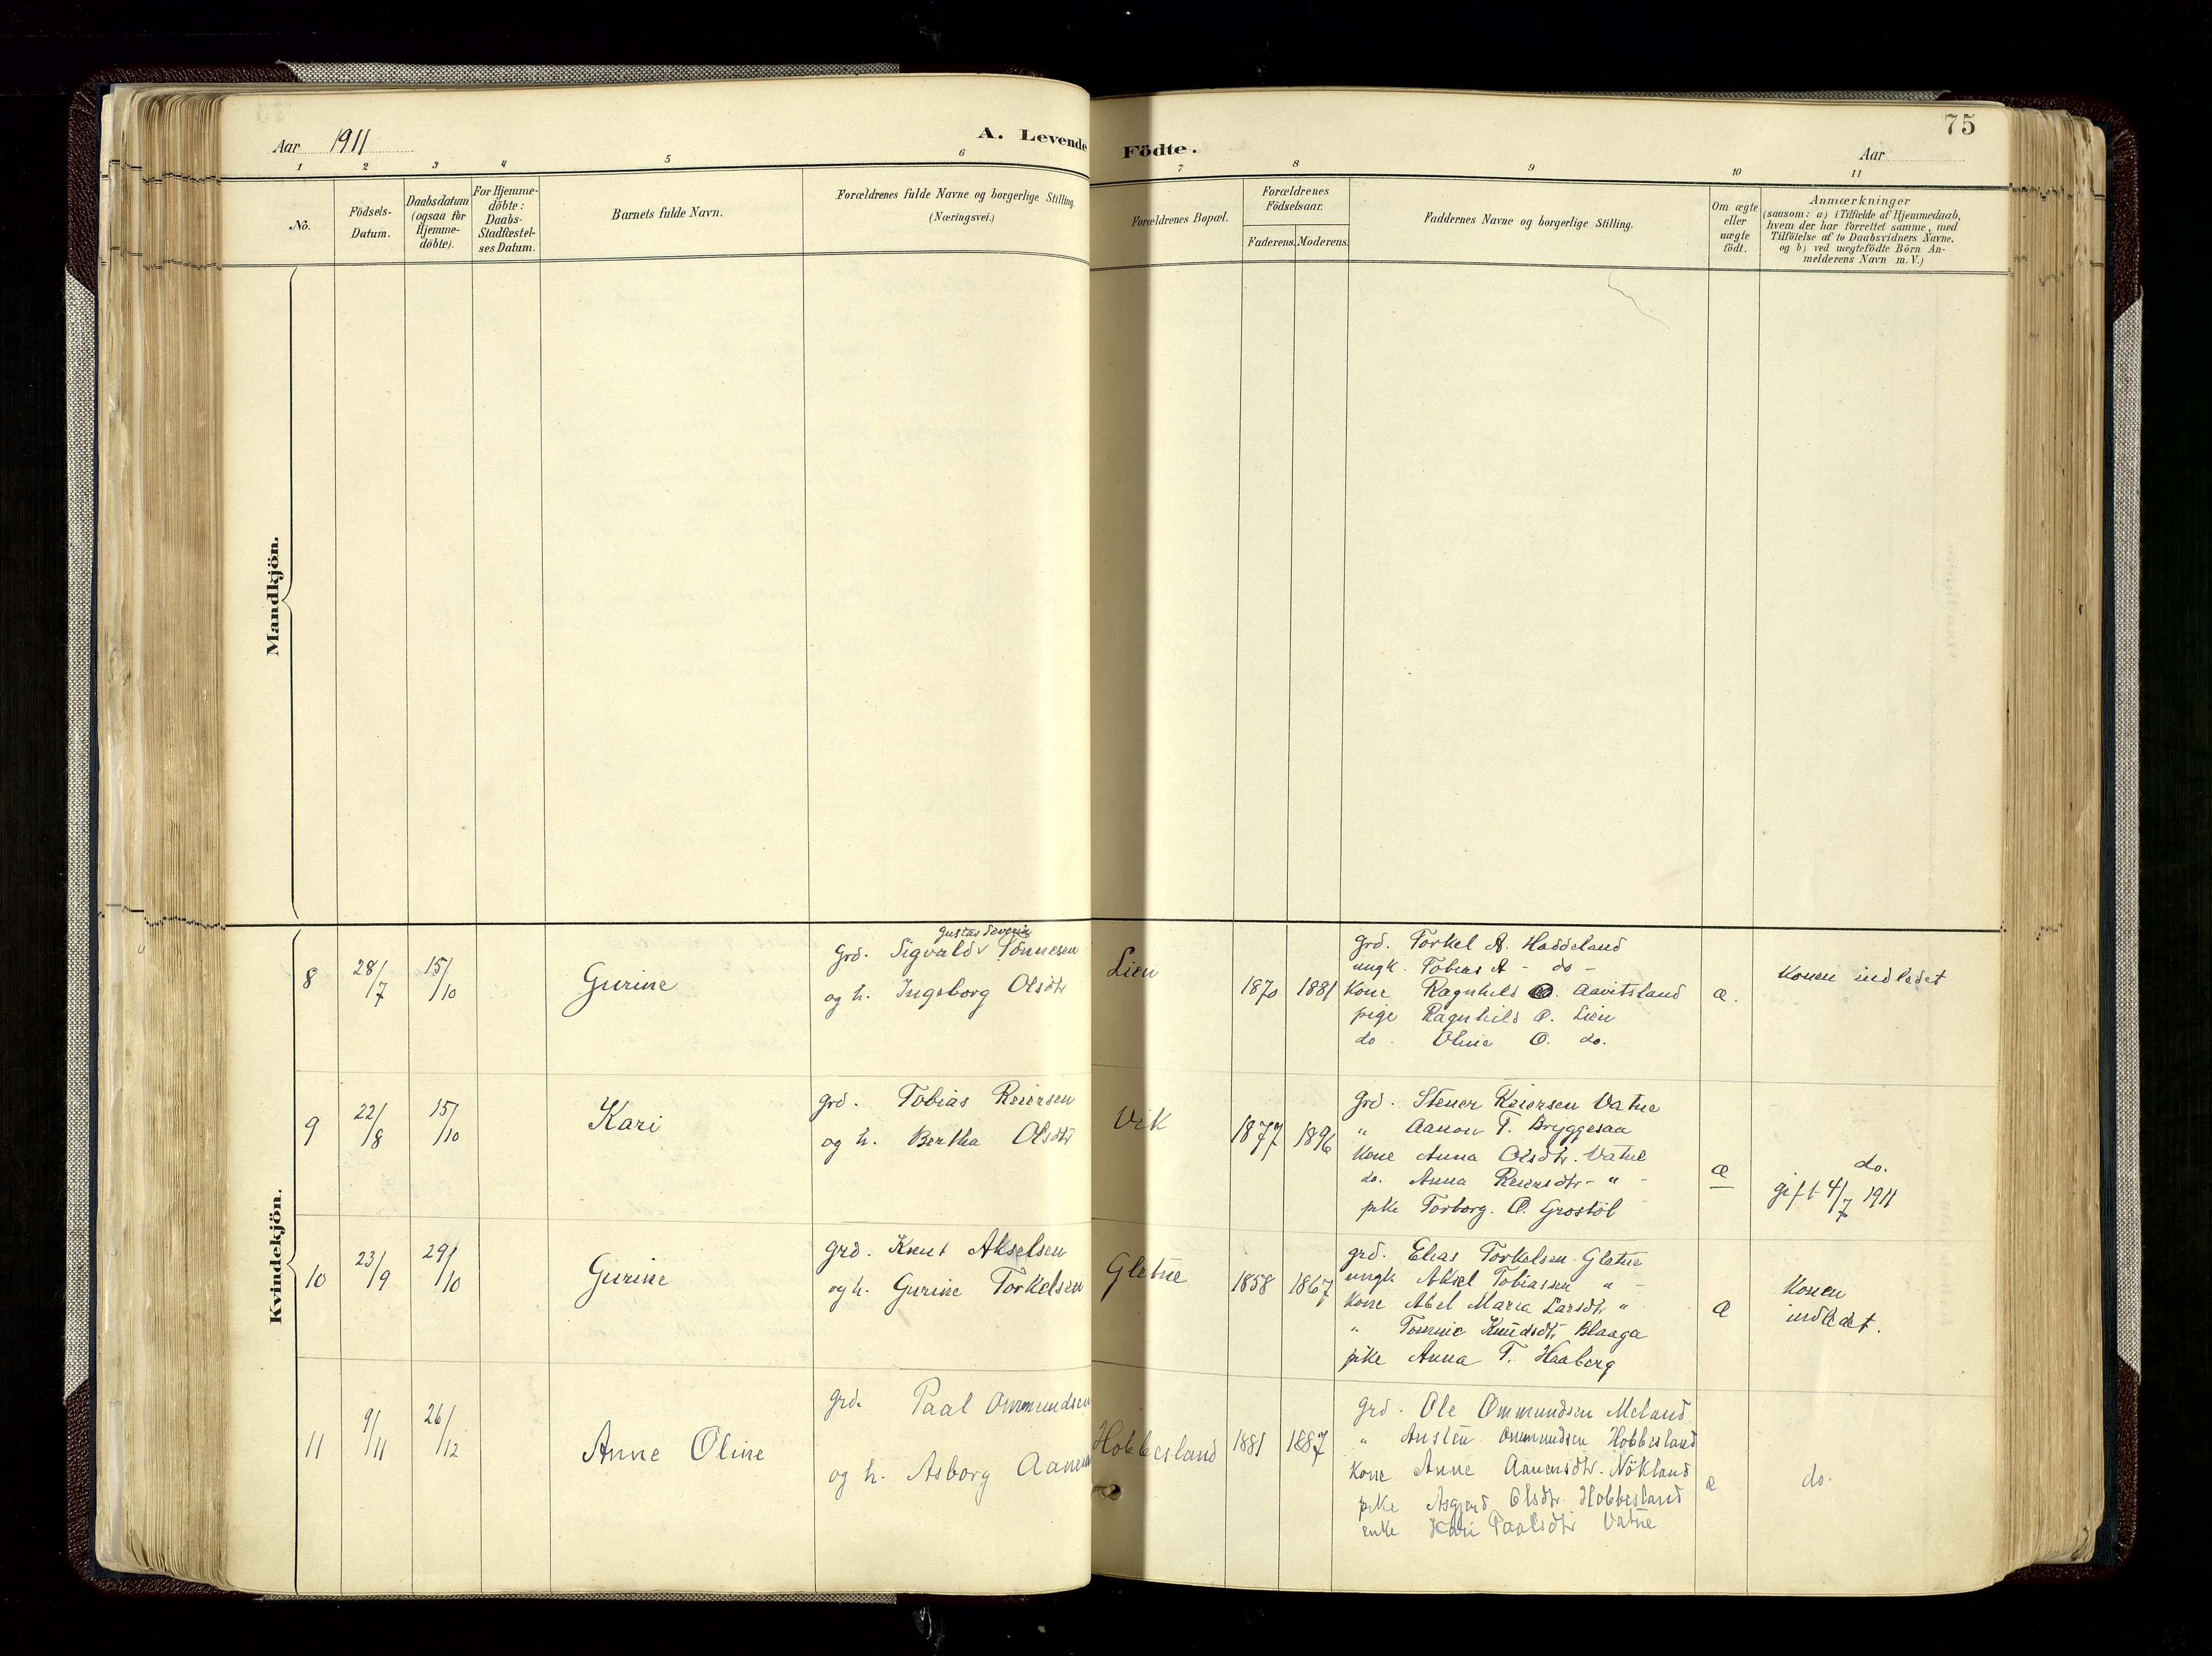 75
Aar 1911
A. Levende Födte.
Aar
1 2 3 4 5 6 7 8 9 10 11
No.
Födsels-
Datum.
Daabsdatum
(ogsaa for
Hjemme-
döbte).
For Hjemme-
döbte:
Daabs-
Stadfæstel-
ses Datum.
Barnets fulde Navn.
Forældrenes fulde Navne og borgerlige Stilling.
(Næringsvei.)
Forældrenes Bopæl.
Forældrenes
Födselsaar.
Faderens. Moderens.
Faddernes Navne og borgerlige Stilling.
Om ægte
eller
uægte
födt.
Anmærkninger
(saasom: a) i Tilfælde af Hjemmedaab,
hvem der har forrettet samme, med
Tilföielse af to Daabsvidners Navne.
og b) ved uægtefödte Börn An-
melderens Navn m. V.)
Mandkjön.
Kvindekjön.
8
28/7
15/10
Gurine
Gustav Severin
Grd. Sigvald Tönnesen
og h. Ingeborg Olsdtr
Lien
1870 1881
Grd. Torkel A. Haddeland
ungk. Tobias A - do -
Kone Ragnhild Aavitsland
pige Ragnhild O. Lien
do. Oline O. do.
æ.
Konen indledet
9
22/8
15/10
Kari
grd. Tobias Reiersen
og h. Bertha Olsdtr
Vik
1877 1896
Grd. Stener Reiersen Vatne
" Aanon T. Bryggesaa
Kone Anna Olsdtr. Vatne
do. Anna Reiersdtr - " -
pike Torborg. O. Grostöl
æ
do.
gift 4/7 1911
10
23/9
29/10
Gurine
Grd. Knut Akselsen
og h. Gurine Torkelsen
Gletne
1858 1867
grd. Elias Torkelsen Gletne
ungk Aksel Tobiassen " -
Kone Abel Maria Larsdtr "
" Tomine Knudsdtr Blaaga
pike Anna T. Haaberg
æ
Konen
indledet.
11
9/11
26/12
Anne Oline
grd. Paal Ommundsen
og h. Asborg Aanen
Hobbesland
1881 1887
Grd. Ole Ommundsen Meland
" Austen Ommundsen Hobbesland
Kone Anne Aanensdtr. Nökland
pike Asgjerd Olsdtr. Hobbesland
enke Kari Paalsdtr Vatne
æ
do.